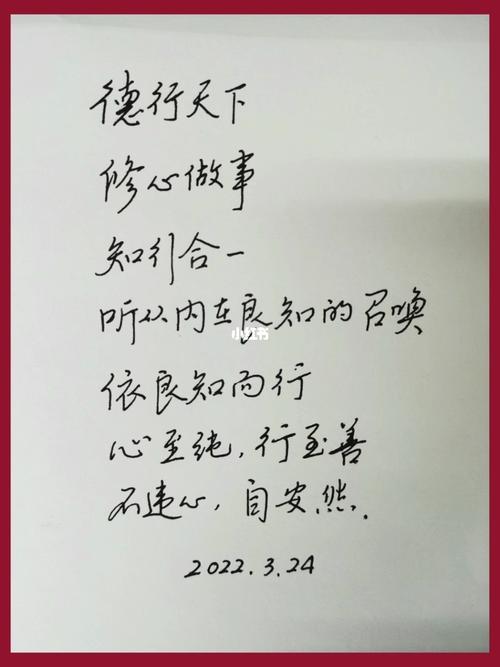 德行天下
修心做事
知行合一
听从内在良知的召唤
小红书
依良知而行
心至纯,行至善
不违心,自安然.
2022.3.24